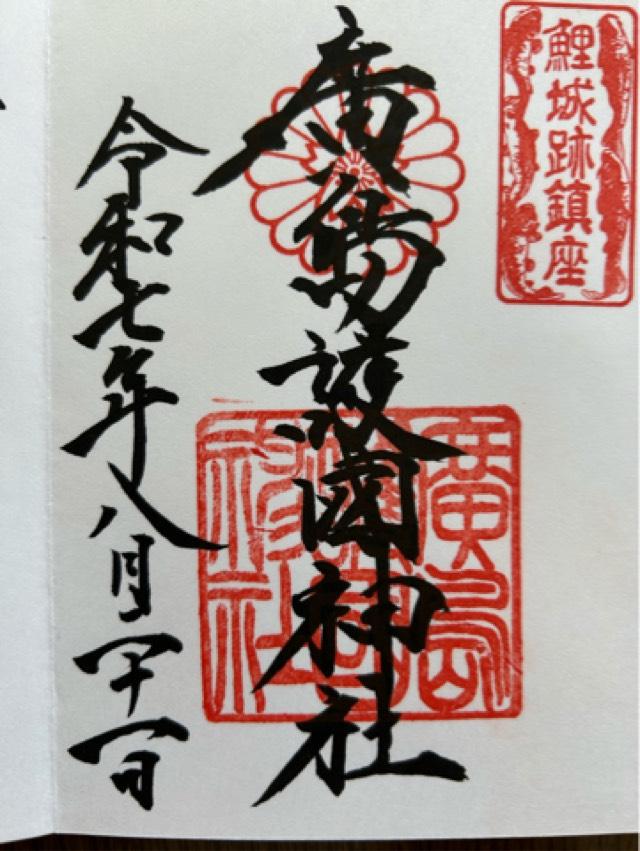 鯉城跡鎮座
廣島護國神社
廣島護國神社
令和七年八月二十一日